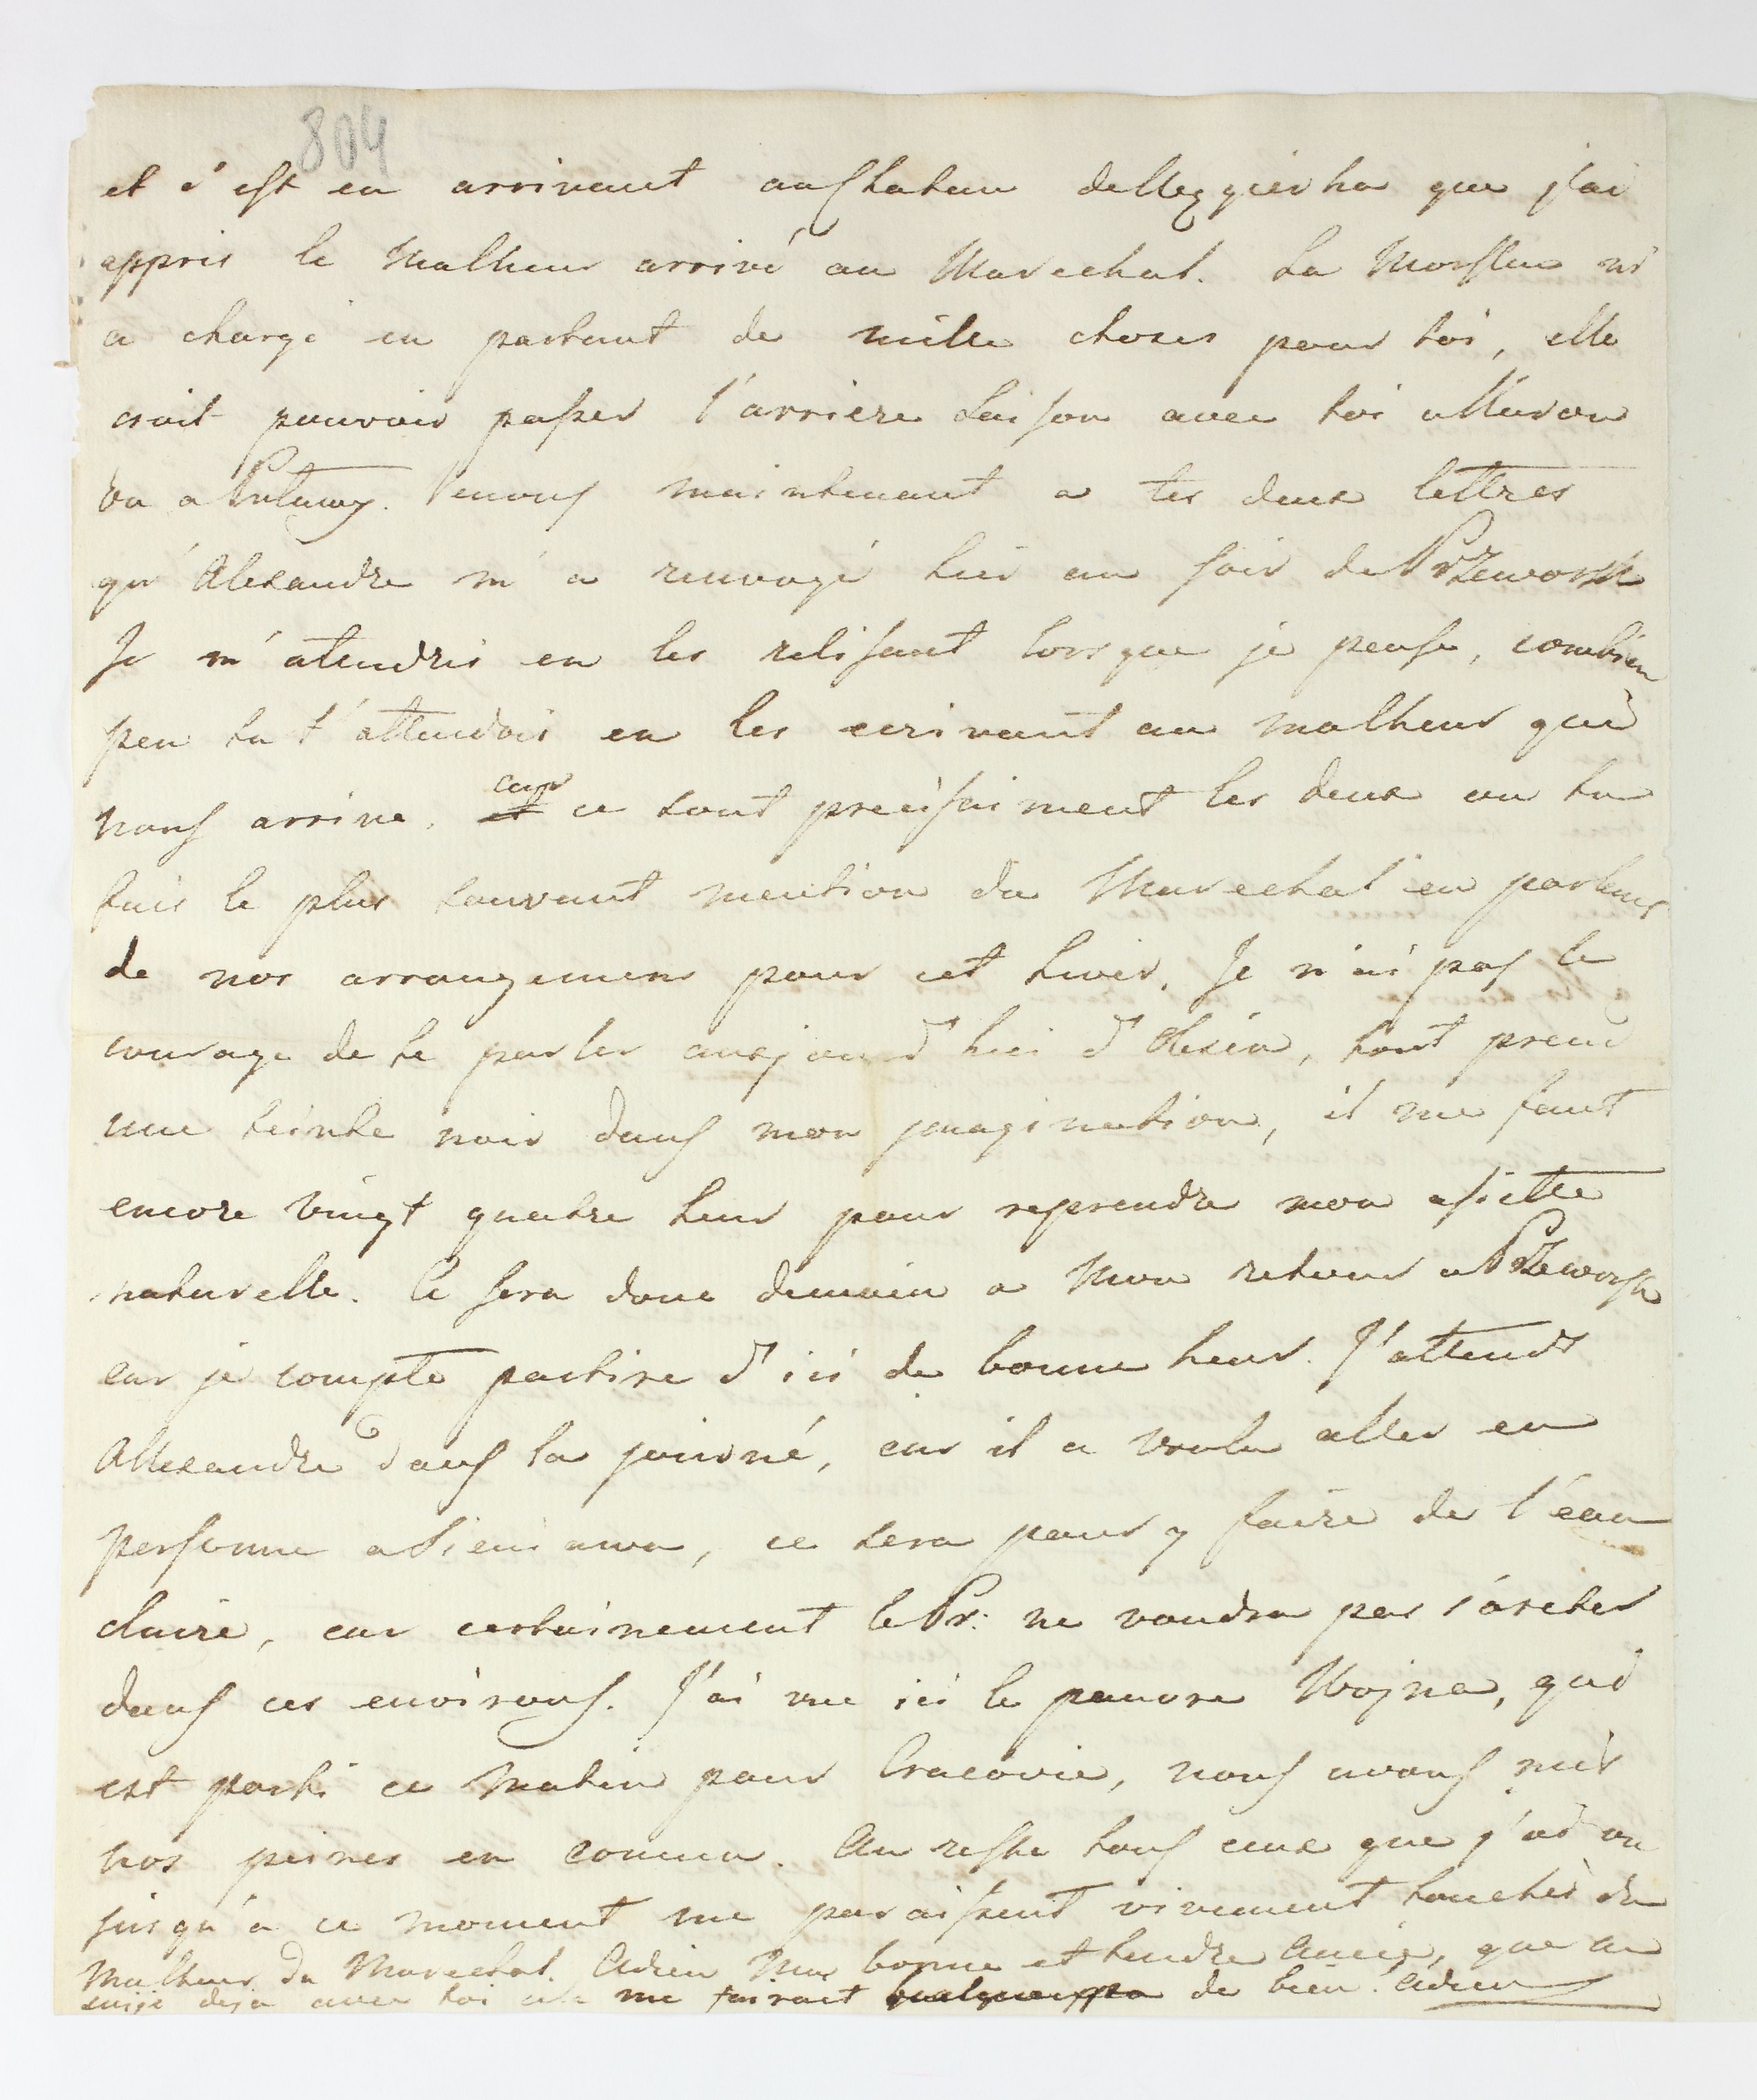 804
et c'est en arrivant que j'ai
appris le Malheur arrivé au Marechal. La m'
a chargé en partant de mille choses pour toi, elle
croit pouvoir passer l'arriere Saison avec toi
ou a Pulawy. Venons maintenant a tes deux lettres
qu'Alexandre m'a renvoyé hier au soir de Przeworsk
Je m'atendris en les relisant lorsque je pense, combien
peu tu t'attendois en les ecrivant au malheur qui
nous arrive, car ce sont preçisaiment les deux ou tu
fais le plus souvant mention du Marechal en parlant
de nos arrangemens pour cet hiver. Je n'ai pas le
courage de te parler aujourd'hui d'Olesin, tout prend
une teinte noir dans mon imagination, il me faut
encore vingt quatre heur pour reprendre mon assiette
naturelle. Ce sera donc demain a mon retour a Przeworsk
car je compte partire d'ici de bonne heur. J'attends
Allexandre dans la journé, car il a voulu aller en
personne a Sieniawa, ce sera pour y faire de l'eau
claire, car certainement le Pr: ne voudra pas s'áreter
dans ces environs. J'ai vu ici le pauvre Wojna, qui
est parti ce matin pour Cracovie, nous avons mis
nos peines en comun. Au reste tous ceux que j'ai vu
jusqu'à ce moment me paraissent vivement touchés du
Malheur du Marechal. Adieu Ma bonne et tendre Amie, que ne
suije deja avec toi me fairait de bien. Adieu